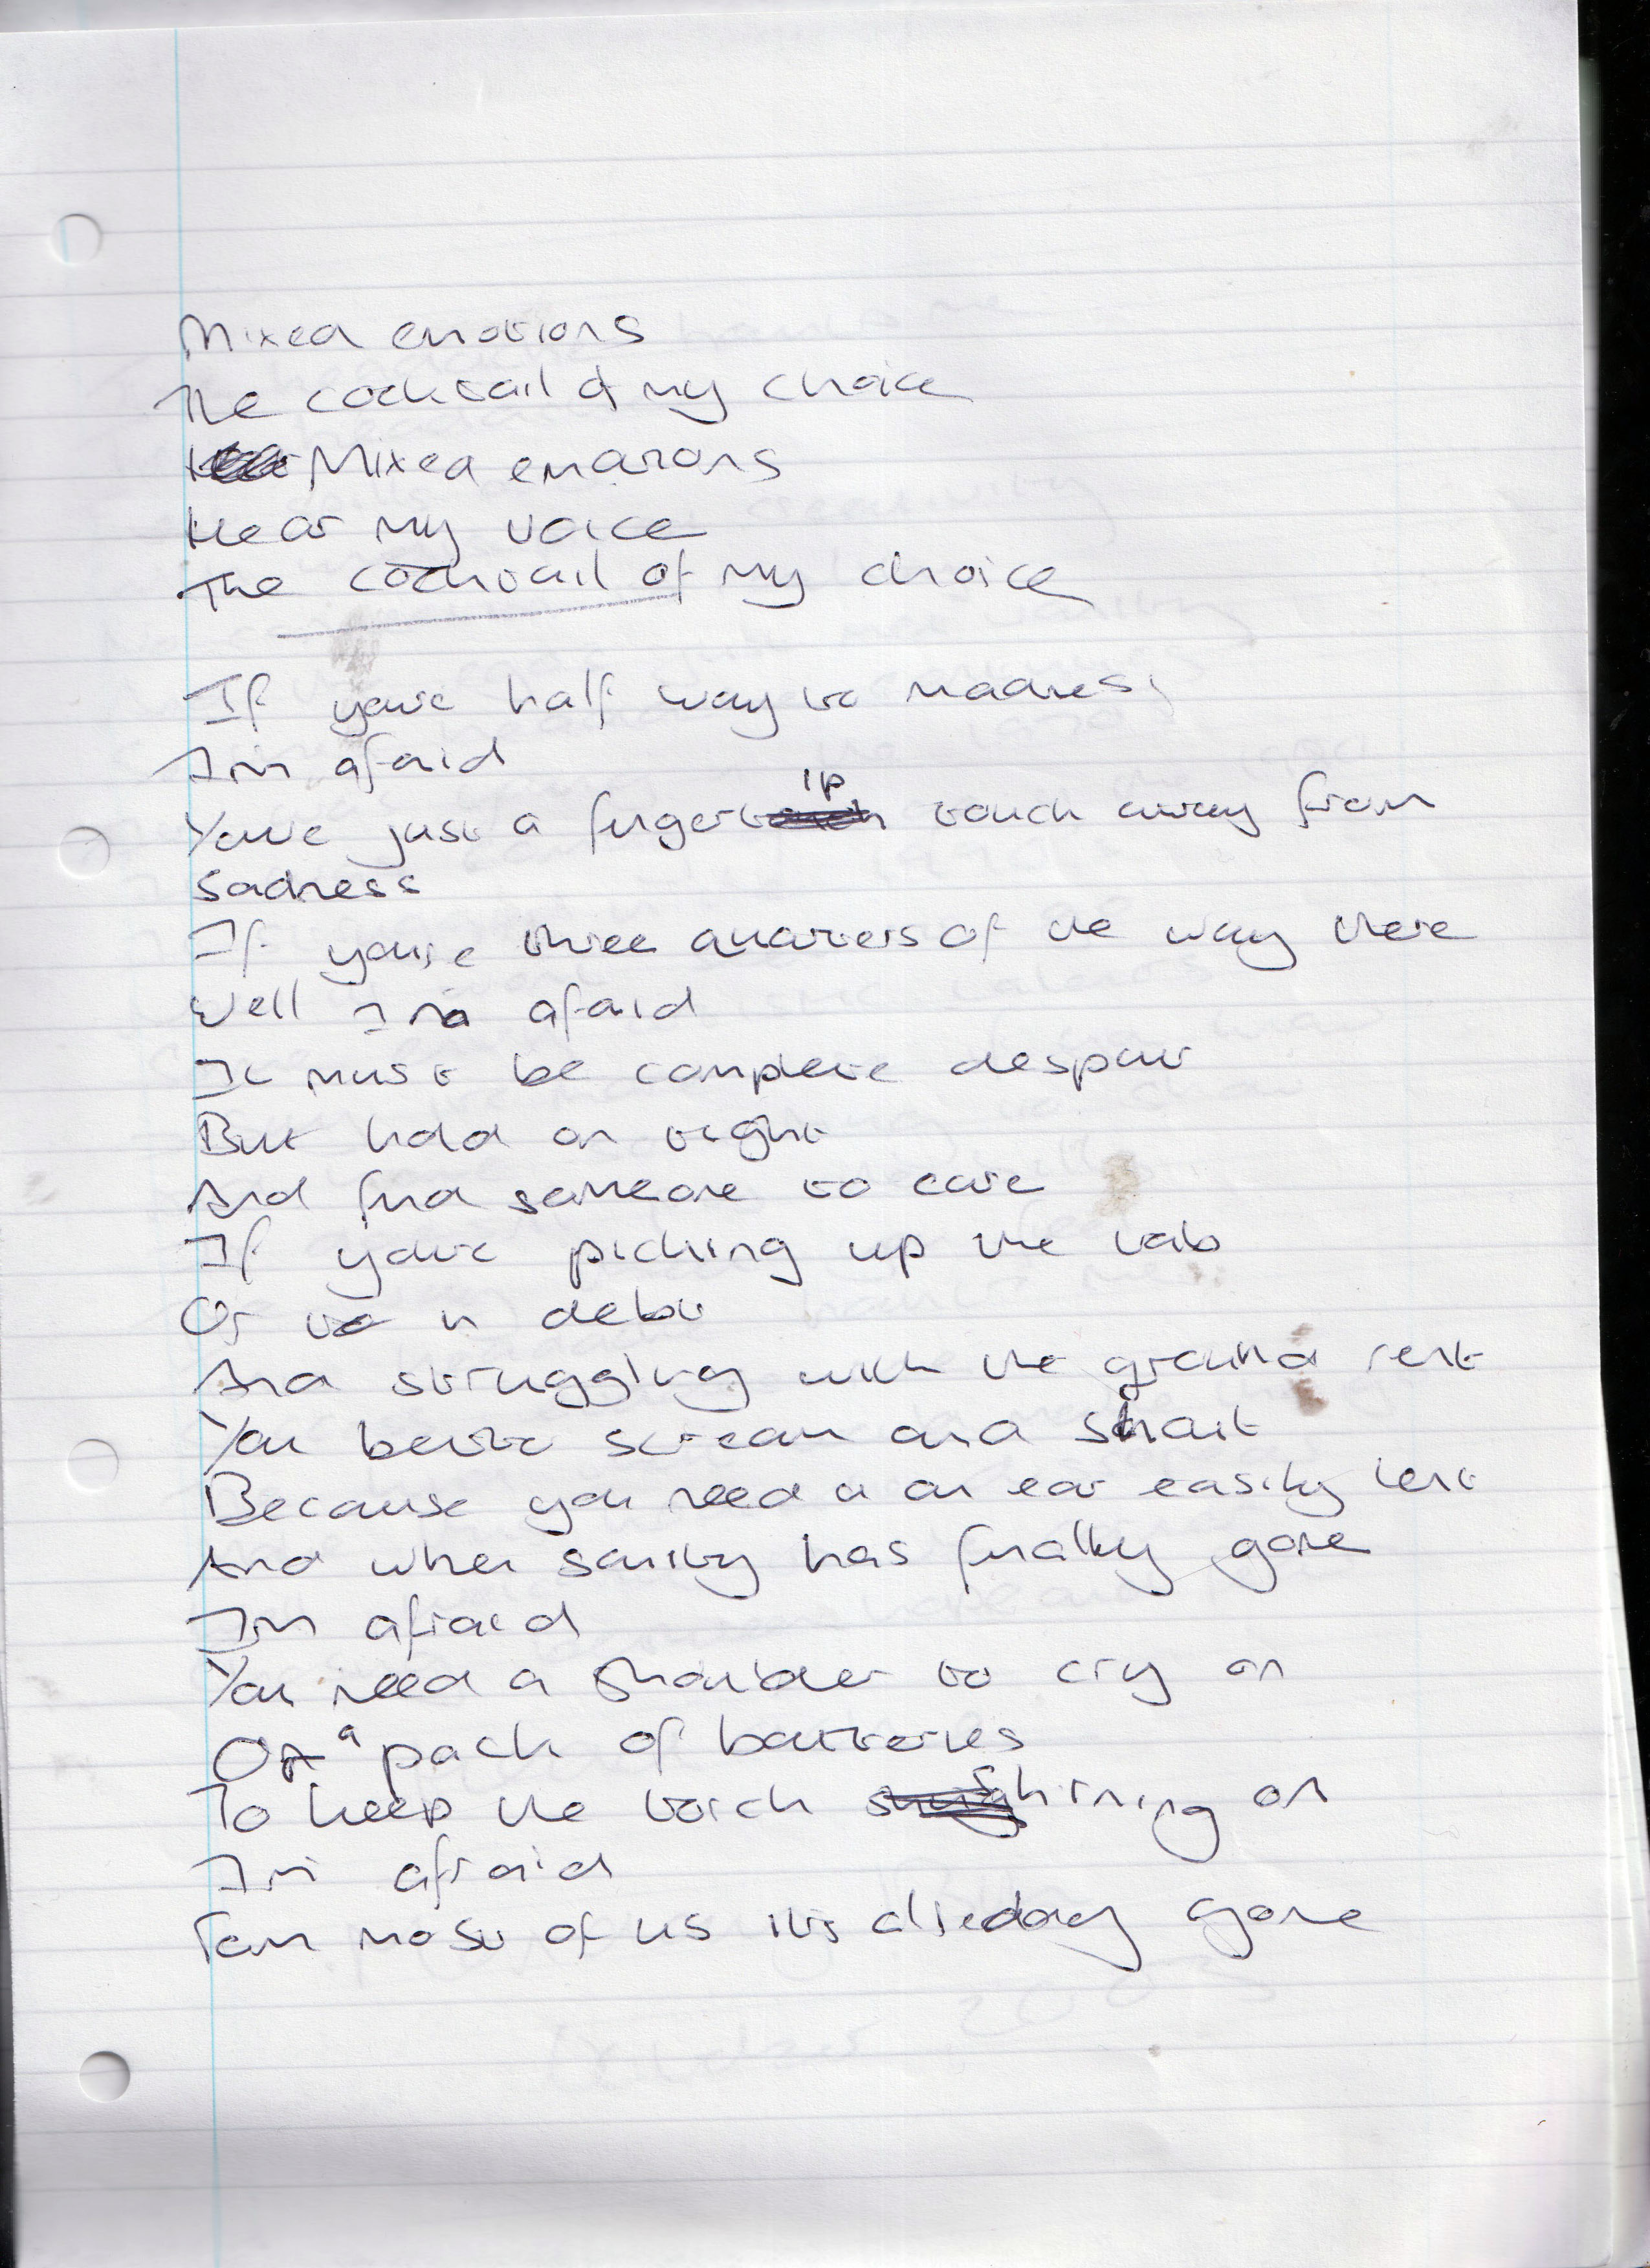 Mixed emotions
The cocktail of my choice
Mixed emotions
Hear my voice
The cocktail of my choice
If you're half way to madness
I'm afaid
You're just a fingertip touch away from
sadness
If you're three quarters of the way there
Well I'm afaid
It must be complete despair
But hold on tight
And find someone to care
If you're picking up the tab
Or in debt
And struggling with the ground rent
You better scream and shout
Because you need a an ear easily lent
And when sanity has finally gone
I'm afraid
You need a shoulder to cry on
Or a pack of batteries
To keep the torch shining on
I'm afraid
most of us its alredday gone